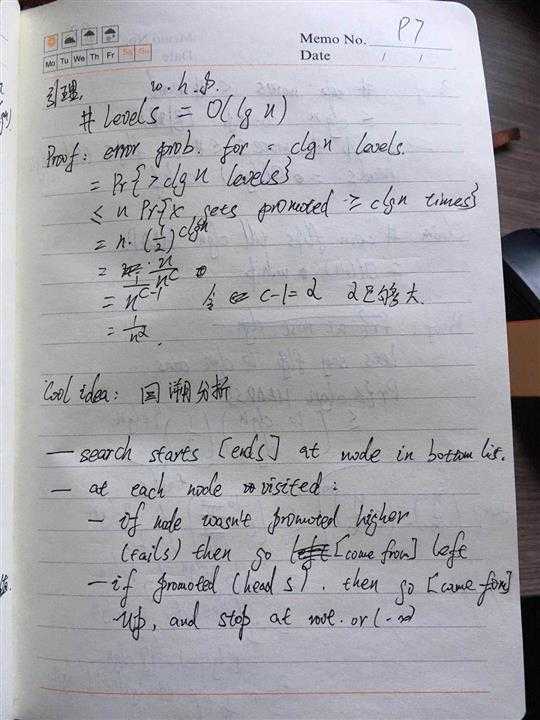 Memo No. P7
Mo Tu We Th Fr Sa Su
Date / /
引理. w.h.p.
# levels = O(lg n)
Proof: error prob. for = clgn levels.
= Pr{>clgn levels}
≤ n Pr{x gets promoted ≥ clgn times}
= n·(1/2)^clgn
= n/n^c
= 1/n^(c-1) 令 c-1=α α足够大.
= 1/n^α
Cool idea: 回溯分析
— search starts [ends] at node in bottom lis.
— at each node visited:
— if node wasn't promoted higher
(tails) then go [come from] left
— if promoted (heads). then go [came from]
up, and stop at root. or (-∞)